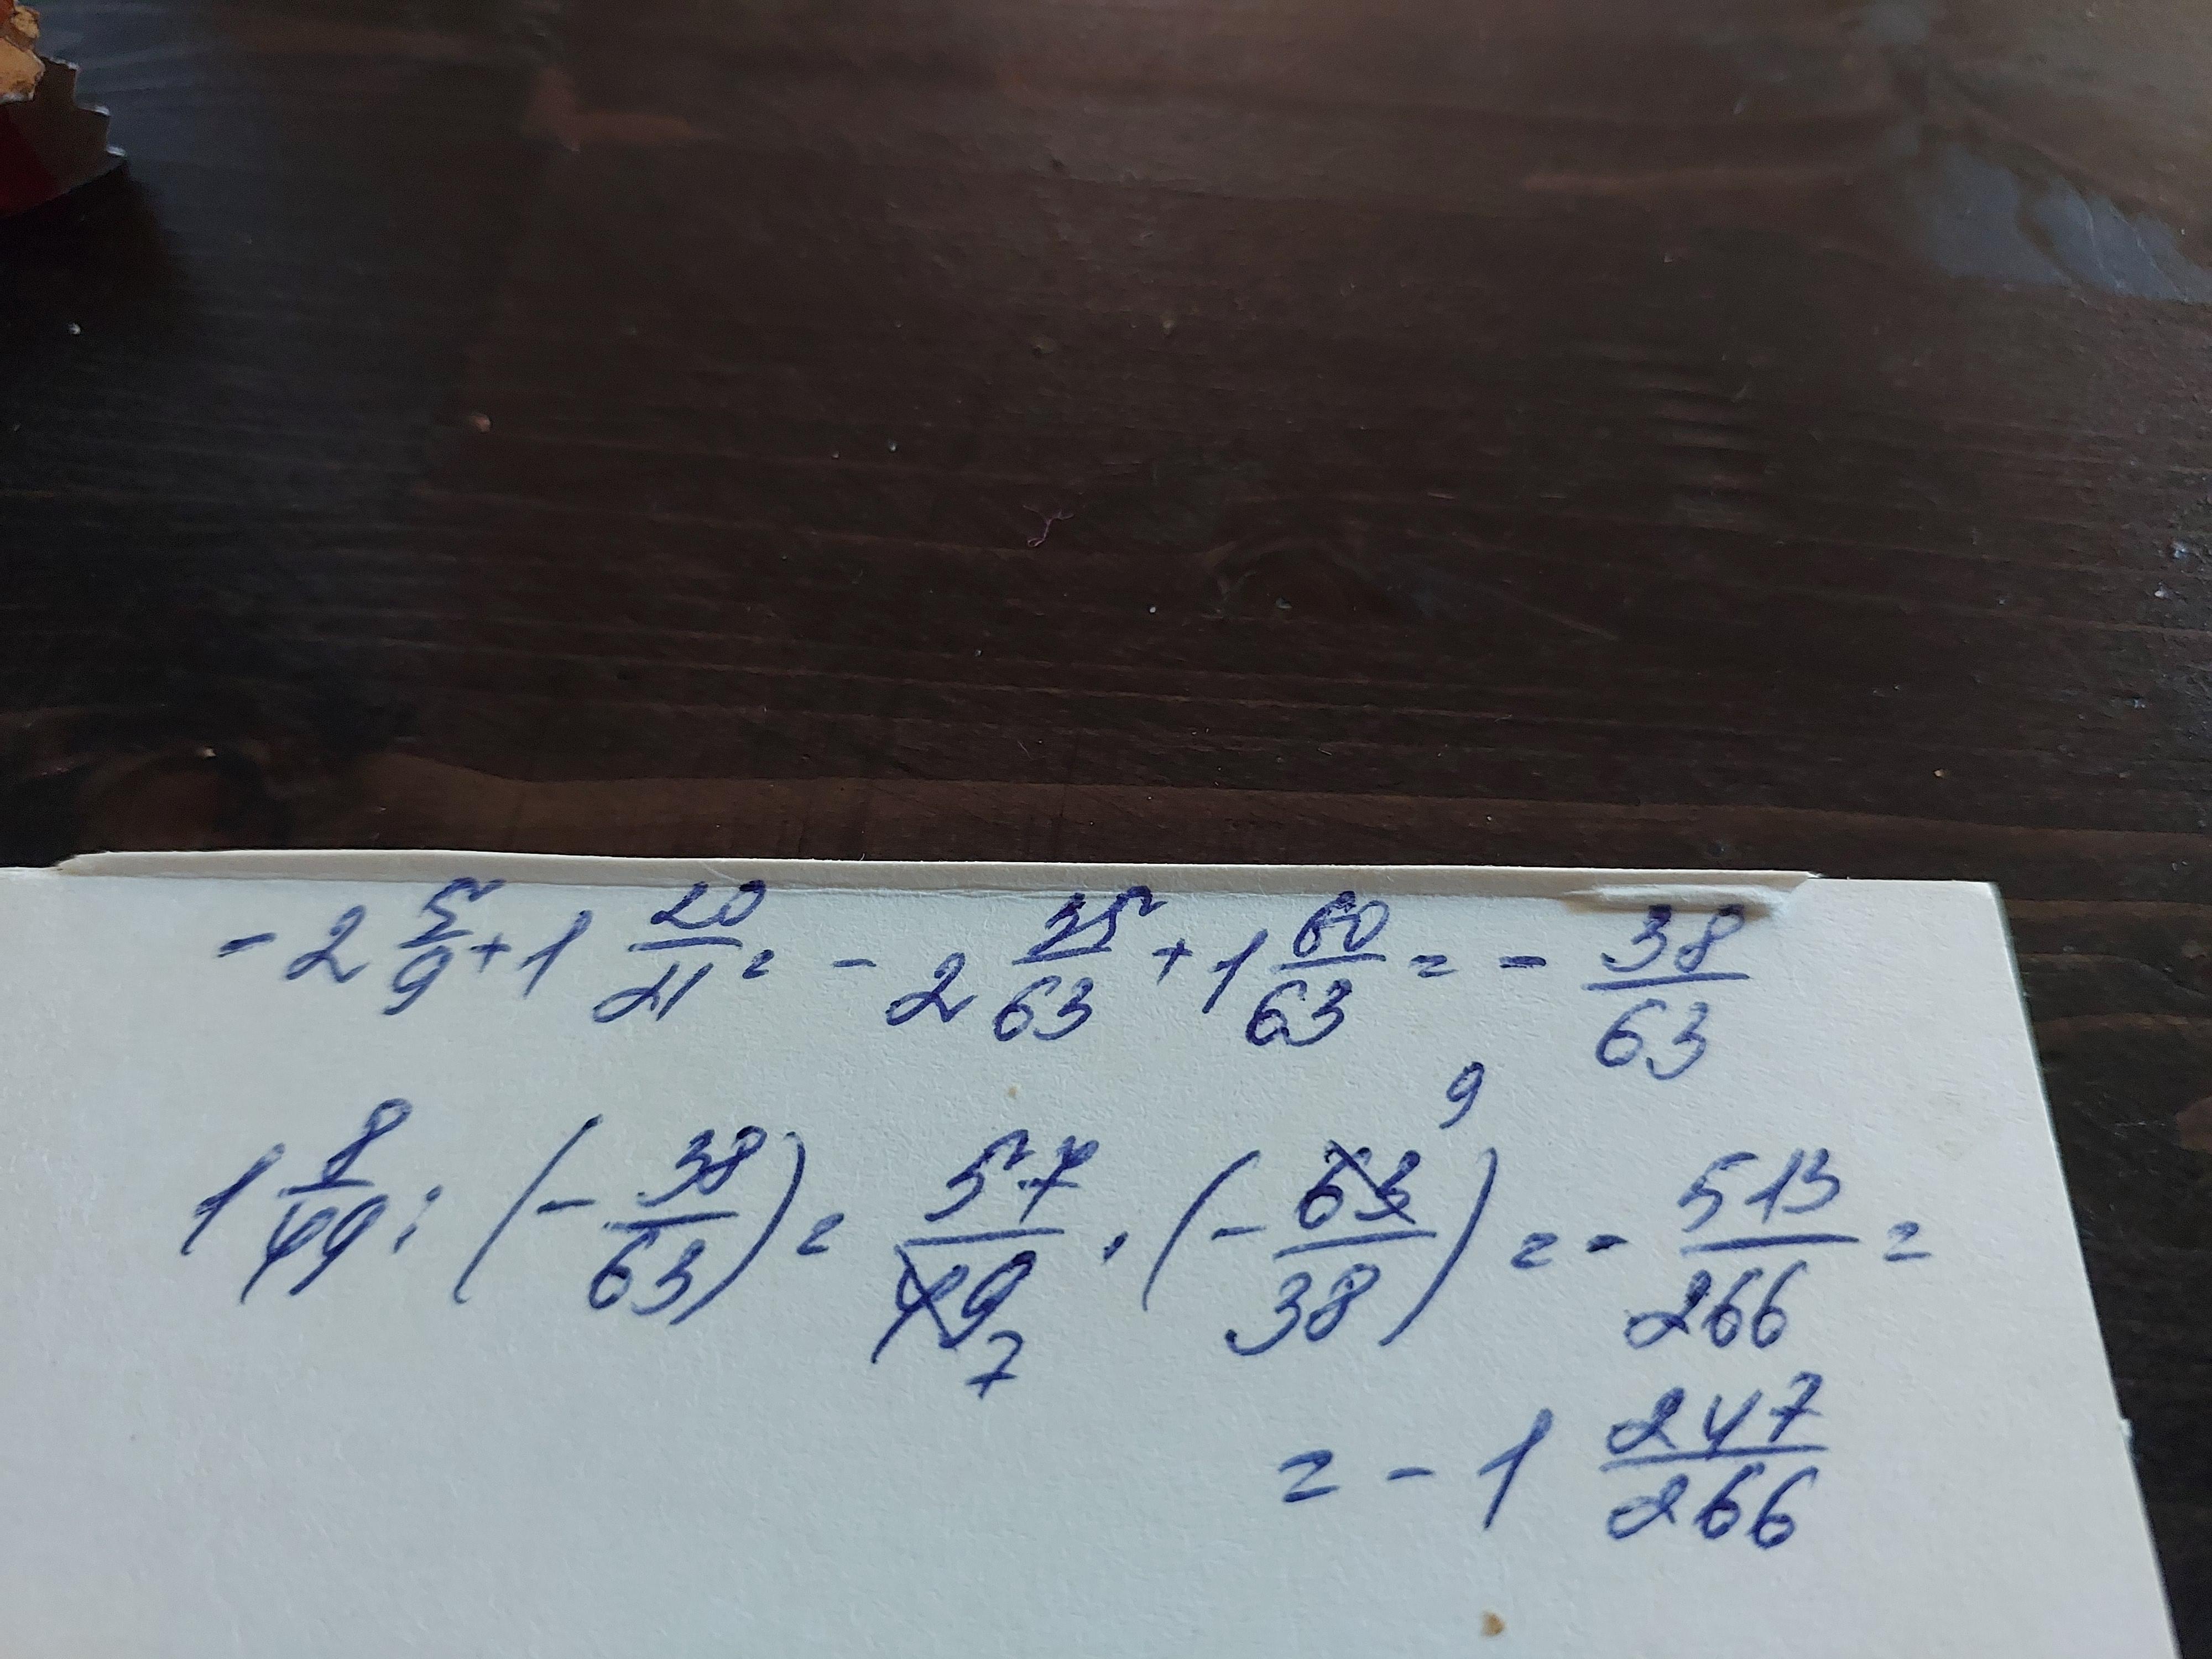 - 2 5/9 + 1 20/21 = - 2 35/63 + 1 60/63 = - 38/63
1 8/49 : (- 38/63) = 57/49 7 · (- 63/38) 9 = - 513/266 =
= - 1 247/266